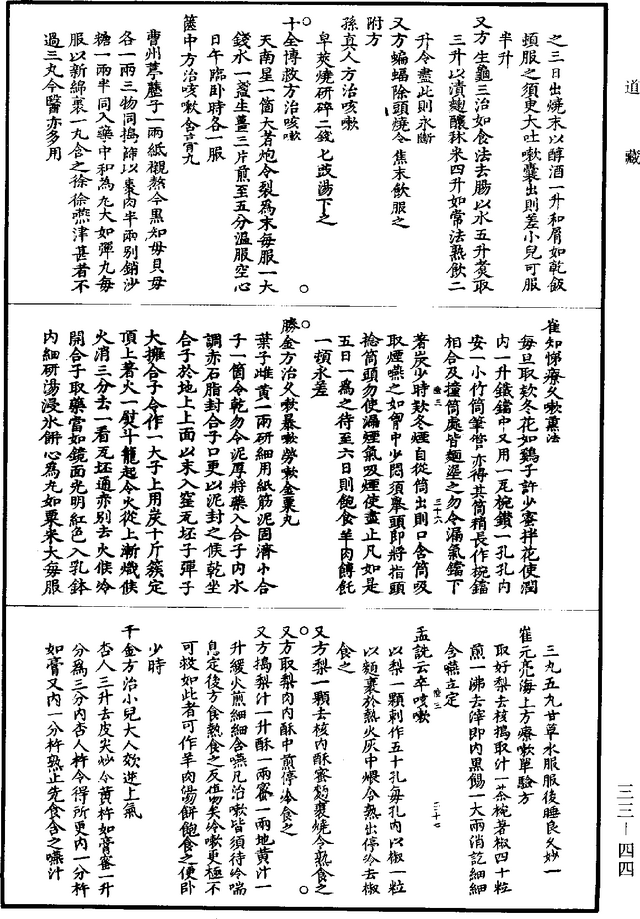 道藏
之三日出燒末以醇酒一升和屑如乾飯
頓服之須臾大吐嗽囊出則差小兒可服
半升
又方生龜三治如食法去腸以水五升煮取
三升以漬麴釀秫米四升如常法熟飲二
升令盡此則永斷
又方蝙蝠除頭燒令焦末飲服之
附方
孫真人方治咳嗽
皁莢燒研碎二錢匕豉湯下之
十全博救方治咳嗽
天南星一箇大者炮令裂為末每服一大
錢水一盞生薑三片煎至五分溫服空心
日午臨臥時各一服
篋中方治咳嗽含膏丸
曹州葶藶子一兩紙襯熬令黑知母貝母
各一兩三物同搗篩以棗肉半兩別銷沙
糖一兩半同入藥中和為丸大如彈丸每
服以新綿裹一丸含之徐徐嚥津甚者不
過三丸今醫亦多用
崔知悌療久嗽熏法
每旦取欵冬花如鷄子許少蜜拌花使潤
內一升鐵鐺中又用一瓦椀鑽一孔孔內
安一小竹筒筆管亦得其筒稍長作椀鐺
相合及撞筒處皆麵埿之勿令漏氣鐺下
著炭少時欵冬煙自從筒出則口含筒吸
取煙嚥之如胷中少悶須舉頭即將指頭
捻筒頭勿使漏煙氣吸煙使盡止凡如是
五日一為之待至六日則飽食羊肉餺飥
一頓永差
勝金方治久嗽暴嗽勞嗽金粟丸
葉子雌黃一兩研細用紙筋泥固濟小合
子一箇令乾勿令泥厚將藥入合子內水
調赤石脂封合子口更以泥封之候乾坐
合子於地上上面以末入窰瓦坯子彈子
大擁合子令作一大子上用炭十斤簇定
頂上著火一熨斗籠起令火從上漸熾候
火消三分去一看瓦坯通赤別去火候冷
開合子取藥當如鏡面光明紅色入乳鉢
內細研湯浸水餅心為丸如粟米大每服
三丸五丸甘草水服服後睡良久妙一
崔元亮海上方療嗽單驗方
取好梨去核搗取汁一茶椀著椒四十粒
煎一沸去滓即內黑餳一大兩消訖細細
含嚥立定
孟詵云卒咳嗽
以梨一顆刺作五十孔每孔內以椒一粒
以麵裹於熱火灰中煨令熟出停冷去椒
食之
又方梨一顆去核內酥蜜麵裹燒令熟食之
又方取梨肉內酥中煎停冷食之
又方搗梨汁一升酥一兩蜜一兩地黃汁一
升緩火煎細細含嚥凡治嗽皆須待冷喘
息定後方食熱食之反傷矣冷嗽更極不
可救如此者可作羊肉湯餅飽食之便臥
少時
千金方治小兒大人欬逆上氣
杏人三升去皮尖炒令黃杵如膏蜜一升
分為三分內杏人杵令得所更內一分杵
如膏又內一分杵熟止先食含之嚥汁
三三－四四